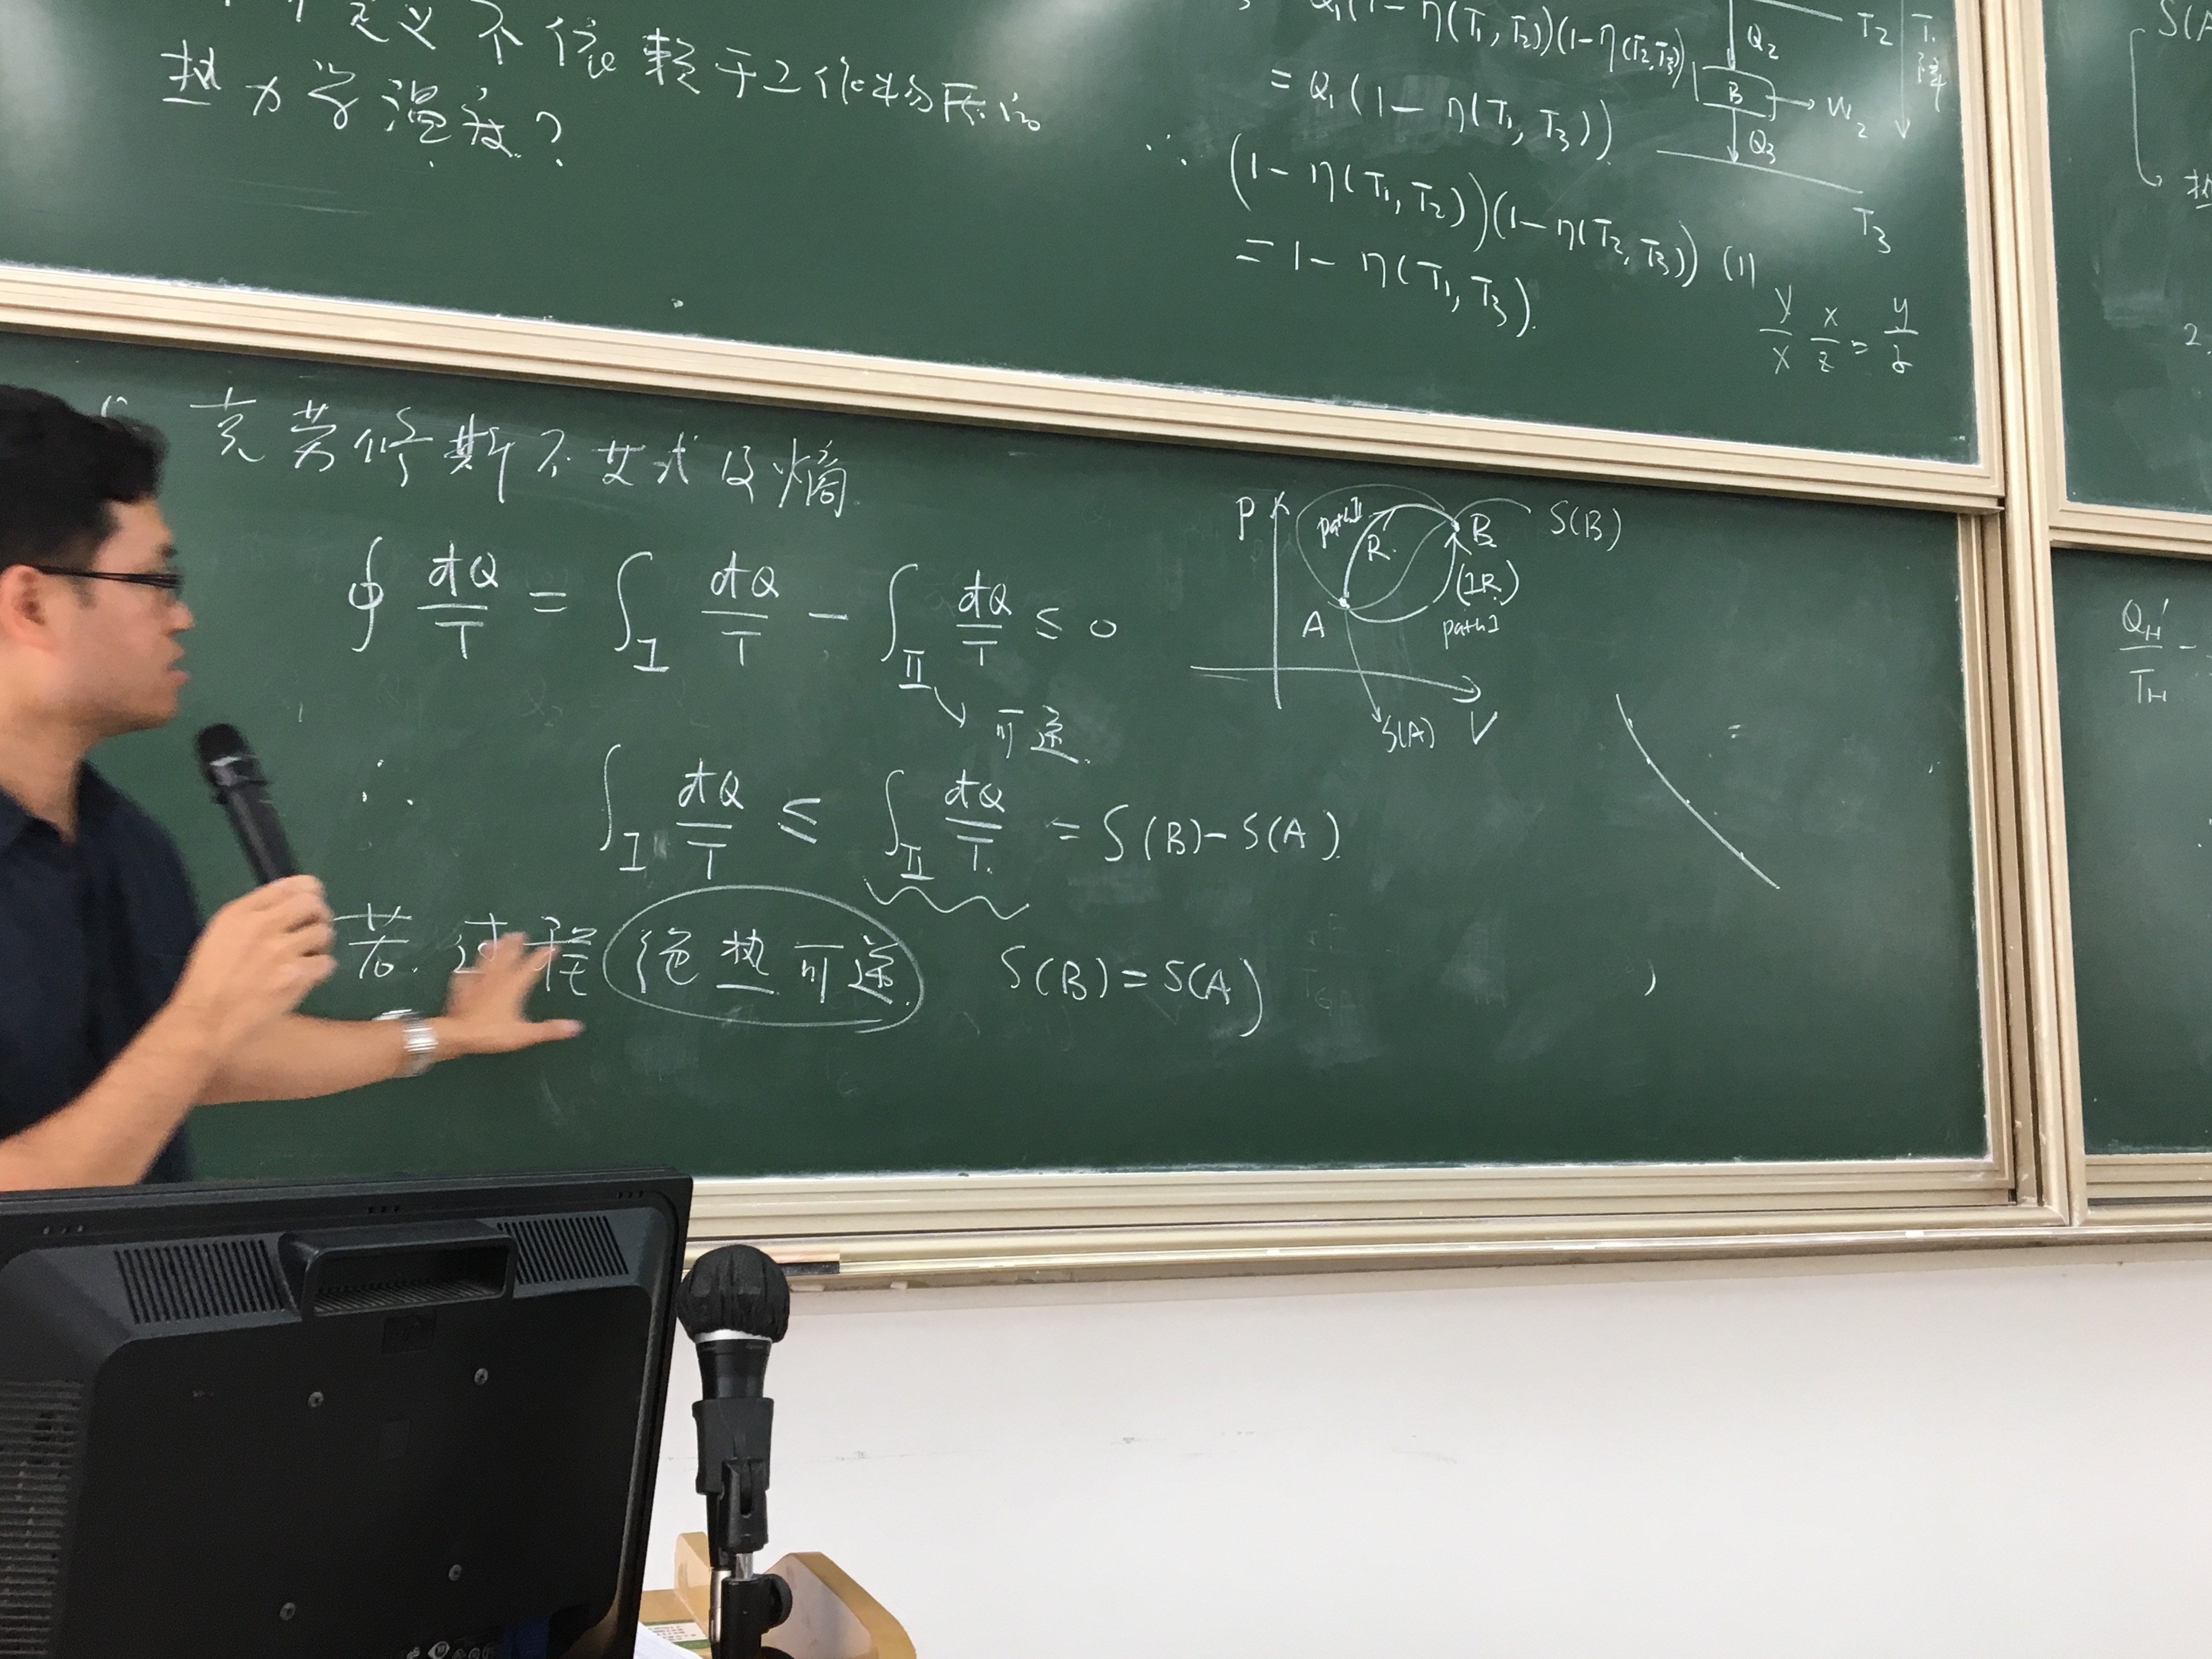 定义不依赖于工作物质的
热力学温度?
Q₁(1-η(T₁,T₂))(1-η(T₂,T₃))
= Q₁(1-η(T₁,T₃))
∴ (1-η(T₁,T₂))(1-η(T₂,T₃)) (1)
= 1-η(T₁,T₃).
y/x x/z = y/z
Q₂
T₂
B
W₂
Q₃
T₃
克劳修斯不等式及熵
∮ đQ/T = ∫_I đQ/T - ∫_II đQ/T ≤ 0
可逆
∴ ∫_I đQ/T ≤ ∫_II đQ/T = S(B)-S(A)
若过程绝热可逆 S(B)=S(A)
P
path II
R
B
S(B)
(IR)
A
path I
S(A)
V
S(A
2.
Q_H'/T_H -